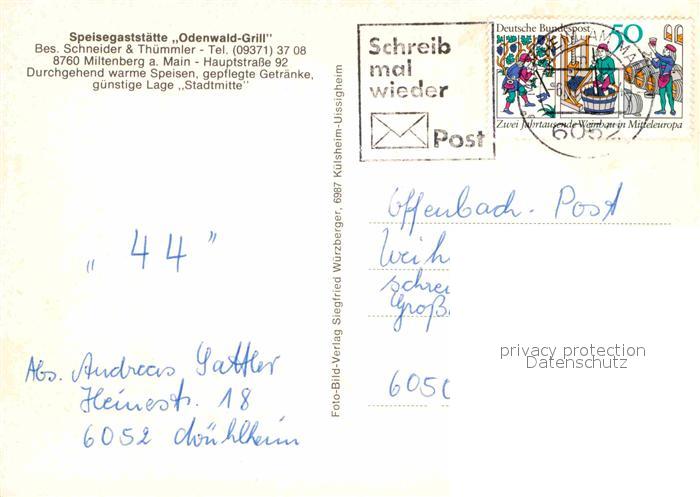 Speisegaststätte „Odenwald-Grill"
Bes. Schneider & Thümmler - Tel. (09371) 37 08
8760 Miltenberg a. Main - Hauptstraße 92
Durchgehend warme Speisen, gepflegte Getränke,
günstige Lage „Stadtmitte"
Schreib
mal
wieder
Post
Deutsche Bundespost 50
Zwei Jahrtausende Weinbau in Mitteleuropa
6052
Foto-Bild-Verlag Siegfried Würzberger, 6987 Külsheim-Uissigheim
„44"
Offenbach-Post
Weih
schrei
Groß
605
Abs. Andreas Sattler
Heinestr. 18
6052 Mühlheim
privacy protection
Datenschutz